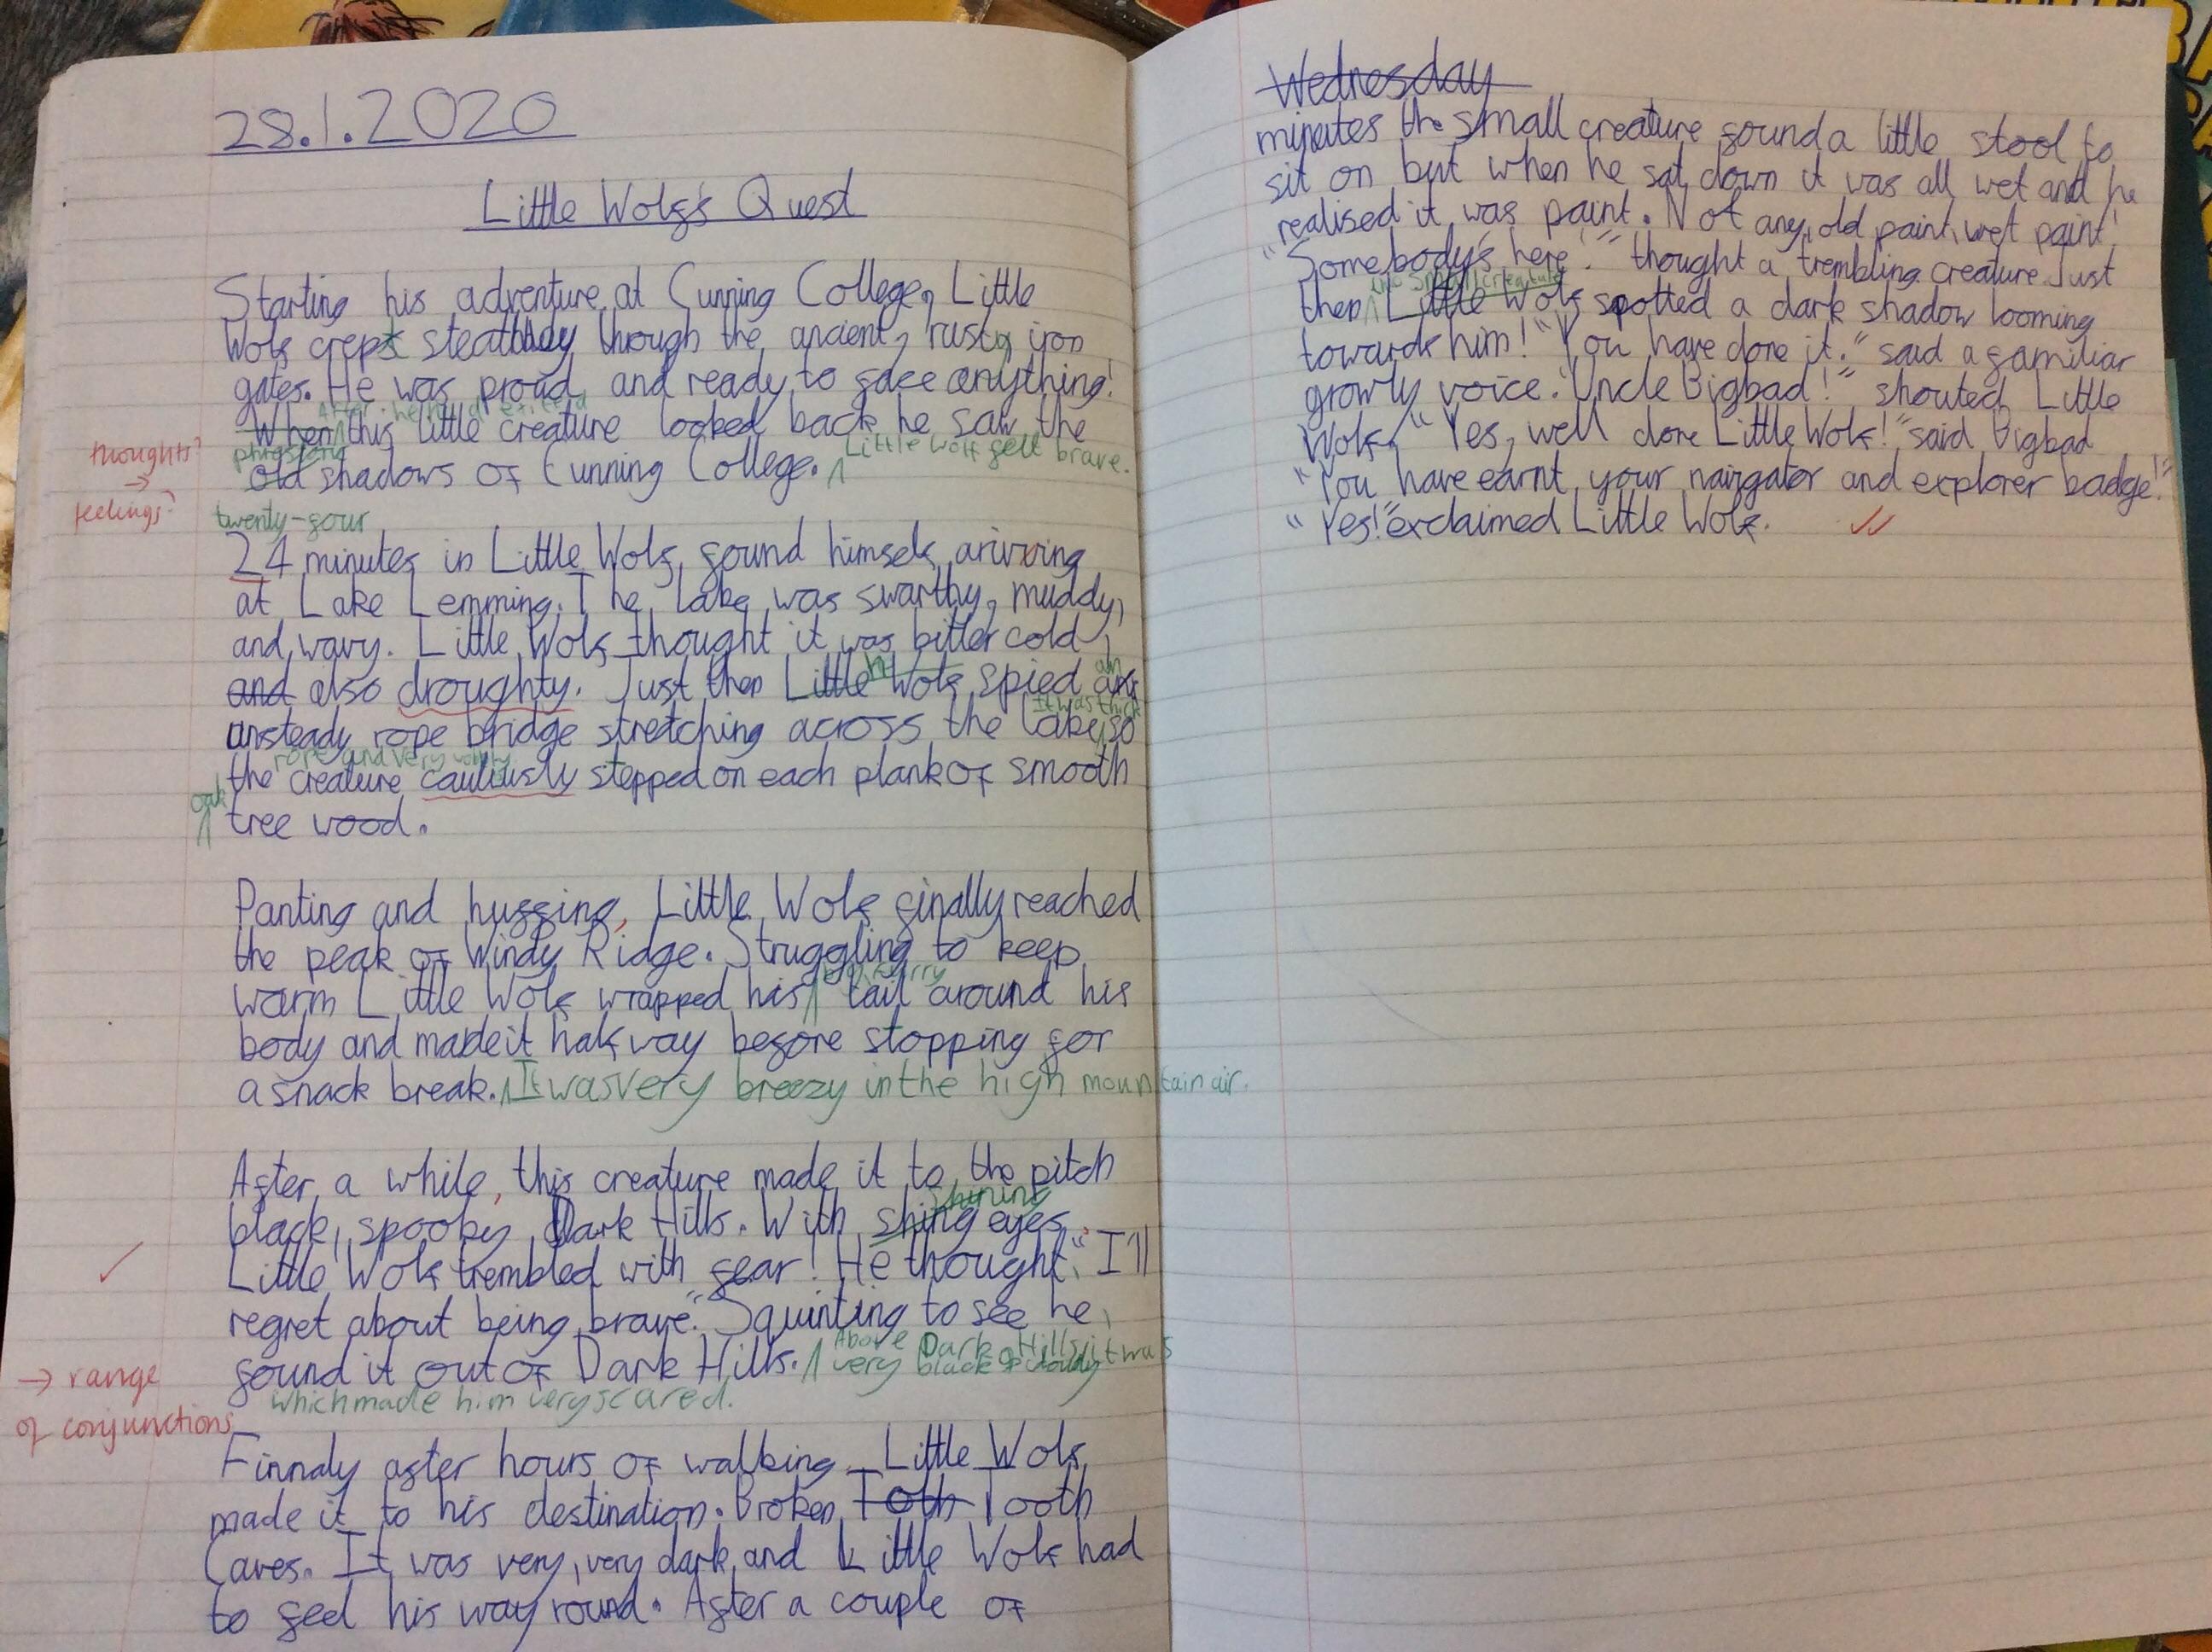 28.1.2020
Little Wolf's Quest
Starting his adventure at Cunning College, Little
Wolf crept stealthily through the ancient, rusty iron
gates. He was proud and ready to face anything!
After he had exited
When this little creature looked back he saw the
thoughts?
→
feelings?
old shadows of Cunning College. Little Wolf felt brave.
twenty-four
24 minutes in Little Wolf found himself arivving
at Lake Lemming. The lake was swarthy, muddy,
and wavy. Little Wolf thought it was bitter cold,
he an
and also droughty. Just then Little Wolf spied an
It was thick
unsteady rope bridge stretching across the lake, so
rope and very wobbly
the creature cautiously stepped on each plank of smooth
oak
tree wood.
Panting and huffing, Little Wolf finally reached
the peak of Windy Ridge. Struggling to keep
furry
warm Little Wolf wrapped his tail around his
body and made it half way before stopping for
a snack break. It was very breezy in the high mountain air.
After a while, this creature made it to the pitch
shining
black, spooky Dark Hills. With shing eyes,
Little Wolf trembled with fear! He thought, "I'll
regret about being brave." Squinting to see he
Above Dark Hills it was
found it out of Dark Hills. very black & cloudy
which made him very scared.
→ range
of conjunctions
Finnaly after hours of walking Little Wolf
made it to his destination. Broken Toth Tooth
Caves. It was very, very dark and Little Wolf had
to feel his way round. After a couple of
Wednesday
minutes the small creature found a little stool to
sit on but when he sat down it was all wet and he
realised it was paint. Not any old paint, wet paint!
"Somebody's here!" thought a trembling creature. Just
the small creature
then Little Wolf spotted a dark shadow looming
towards him! "You have done it." said a familiar
growly voice. "Uncle Bigbad!" shouted Little
Wolf. "Yes, well done Little Wolf!" said Bigbad
"You have earnt your navigator and explorer badge!"
"Yes!" exclaimed Little Wolf.